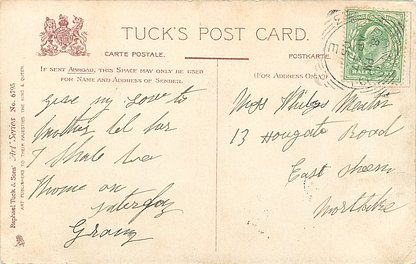 TUCK'S POST CARD.
CARTE POSTALE. POSTKARTE.
IF SENT ABROAD, THIS SPACE MAY ONLY BE USED
FOR NAME AND ADDRESS OF SENDER.
(FOR ADDRESS ONLY.)
Give my Love to
Mother tel her
I shale be
Home on
Saterday
Granny
Miss
13 Houghate Road
East Sheen
Mortlake
Raphael Tuck & Sons' "Art" Series No. 6795
ART PUBLISHERS TO THEIR MAJESTIES THE KING & QUEEN.
HALFPENNY